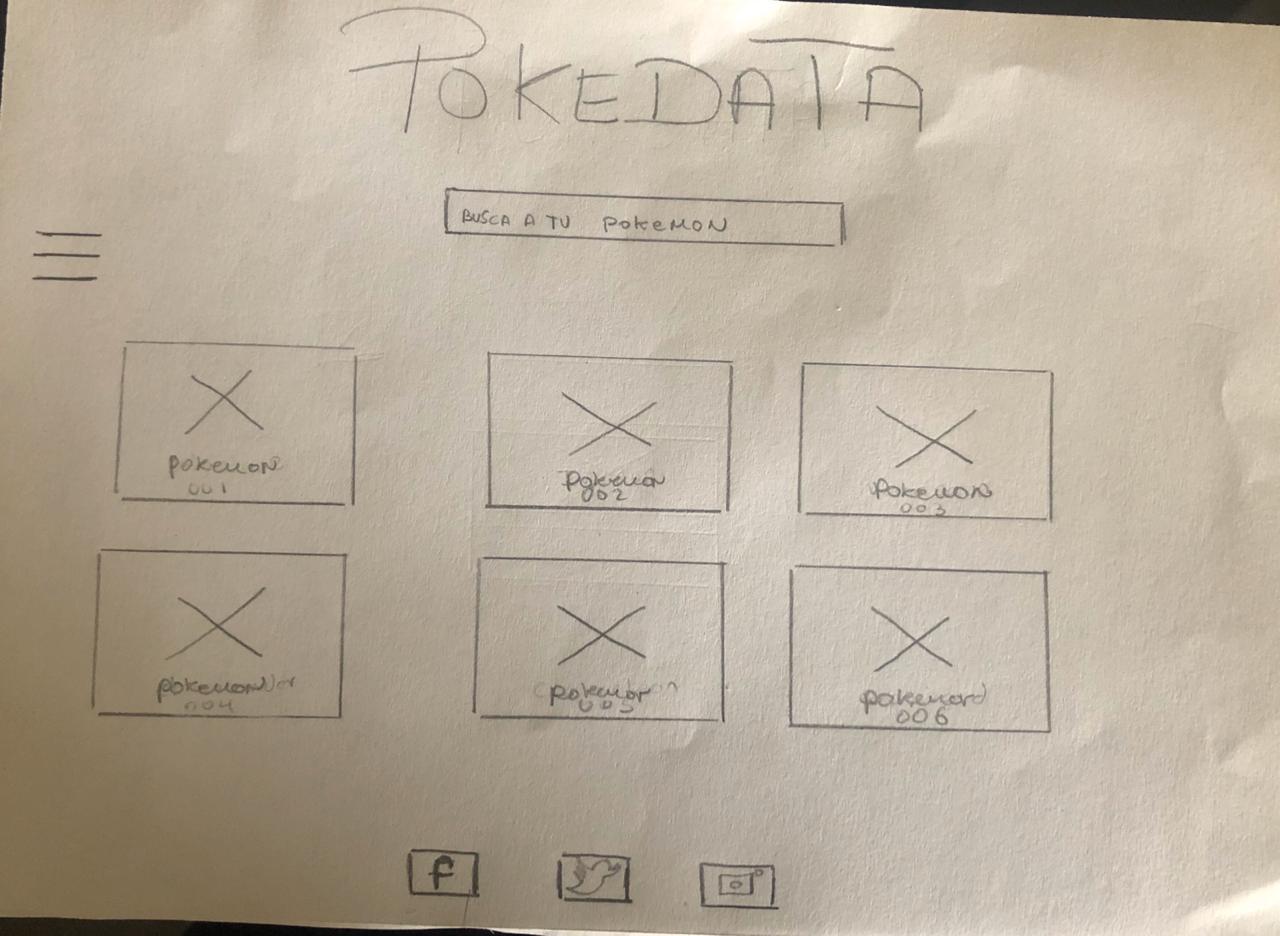 POKEDATA
BUSCA A TU POKEMON
pokemon
001
pokemon
002
pokemon
003
pokemon
004
pokemon
005
pokemon
006
f